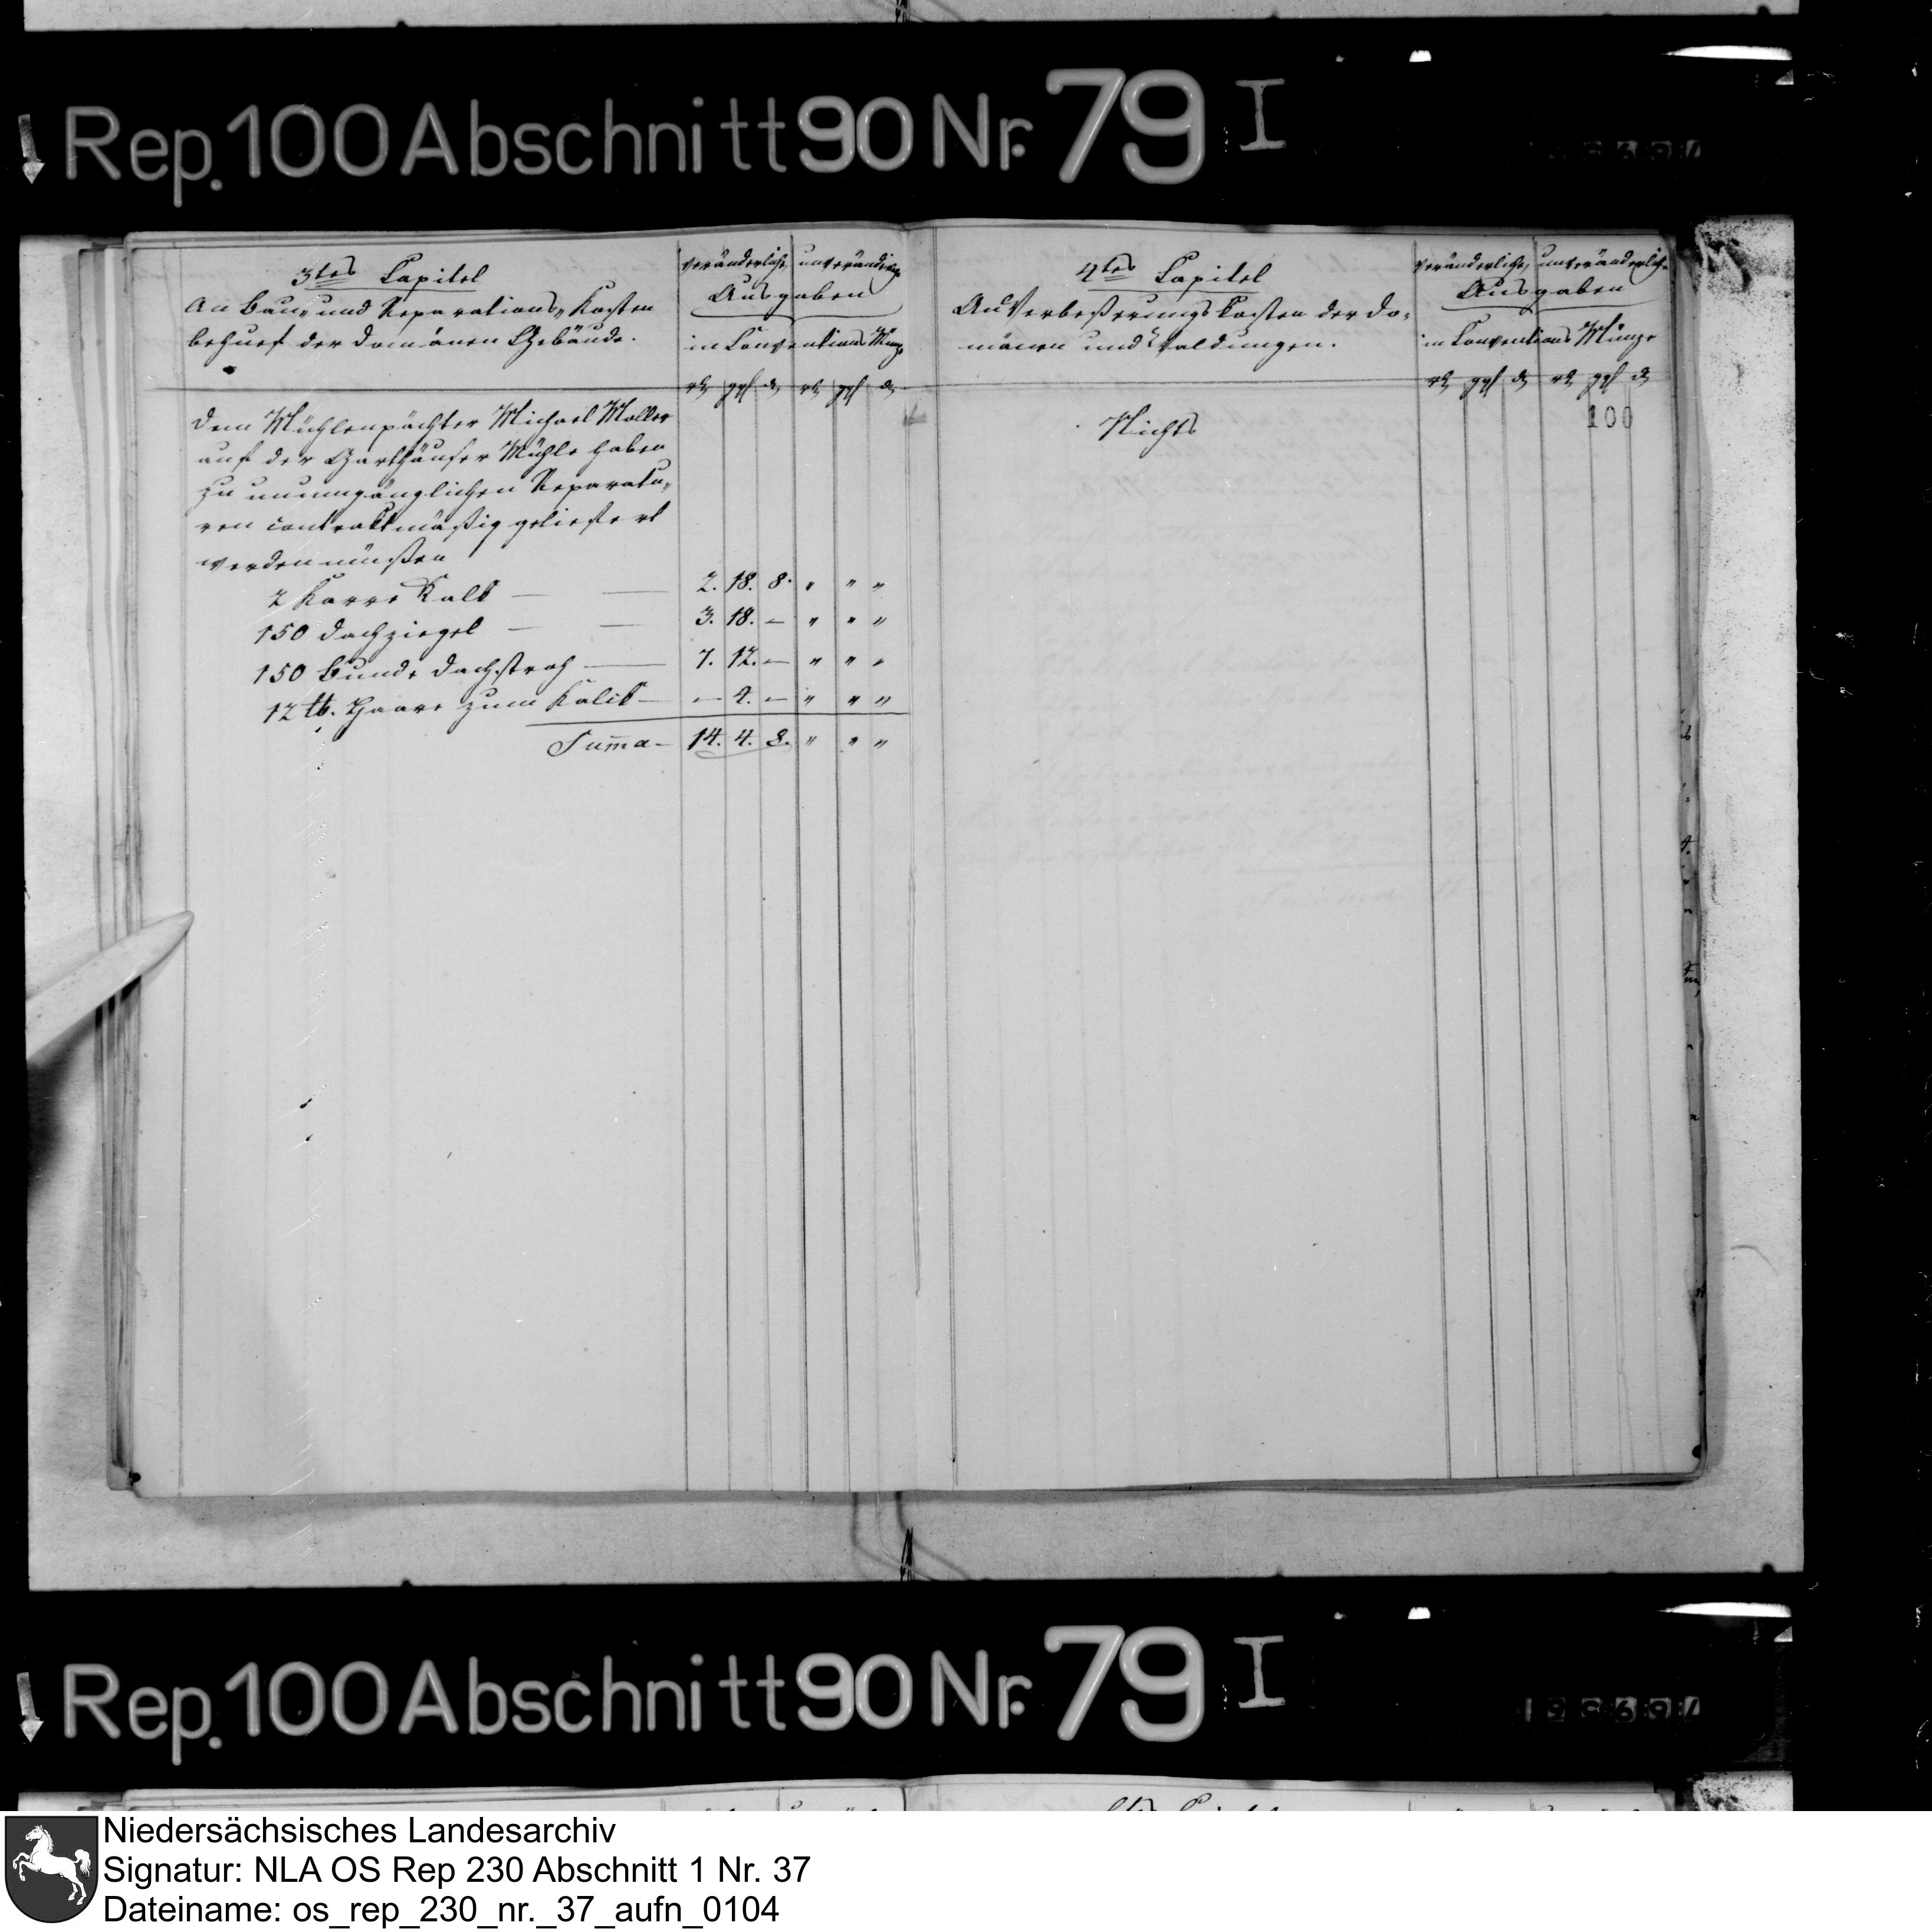 Rep. 100 Abschnitt 90 Nr. 79 I
3tes Capitel
An Bau, und Reparations, Kosten
behuef der Domänen Gebäude.
veränderliche unveränderliche
Ausgaben
in Conventions Münze
rth ggl d rth ggl d
Dem Mühlenpächter Michael Moller
auf der Garthäuser Mühle haben
zu unumgänglichen Reparatu,
ren contraktmäßig geliefert
werden müßen
2 Karre Kalk — — 2. 18. 8. " " "
150 Dachziegel — — 3. 18. — " " "
150 Bunde Dachstroh — 7. 12. — " " "
12 tb. Haare zum Kalk — — 4. — " " "
Suma — 14. 4. 8. " " "
4tes Capitel
An Verbeßerungs Kosten der Do=
mänen und Waldungen.
veränderliche unveränderliche
Ausgaben
in Conventions Münze
rth ggl d rth ggl d
100
Nichts
Rep. 100 Abschnitt 90 Nr. 79 I
Niedersächsisches Landesarchiv
Signatur: NLA OS Rep 230 Abschnitt 1 Nr. 37
Dateiname: os_rep_230_nr._37_aufn_0104